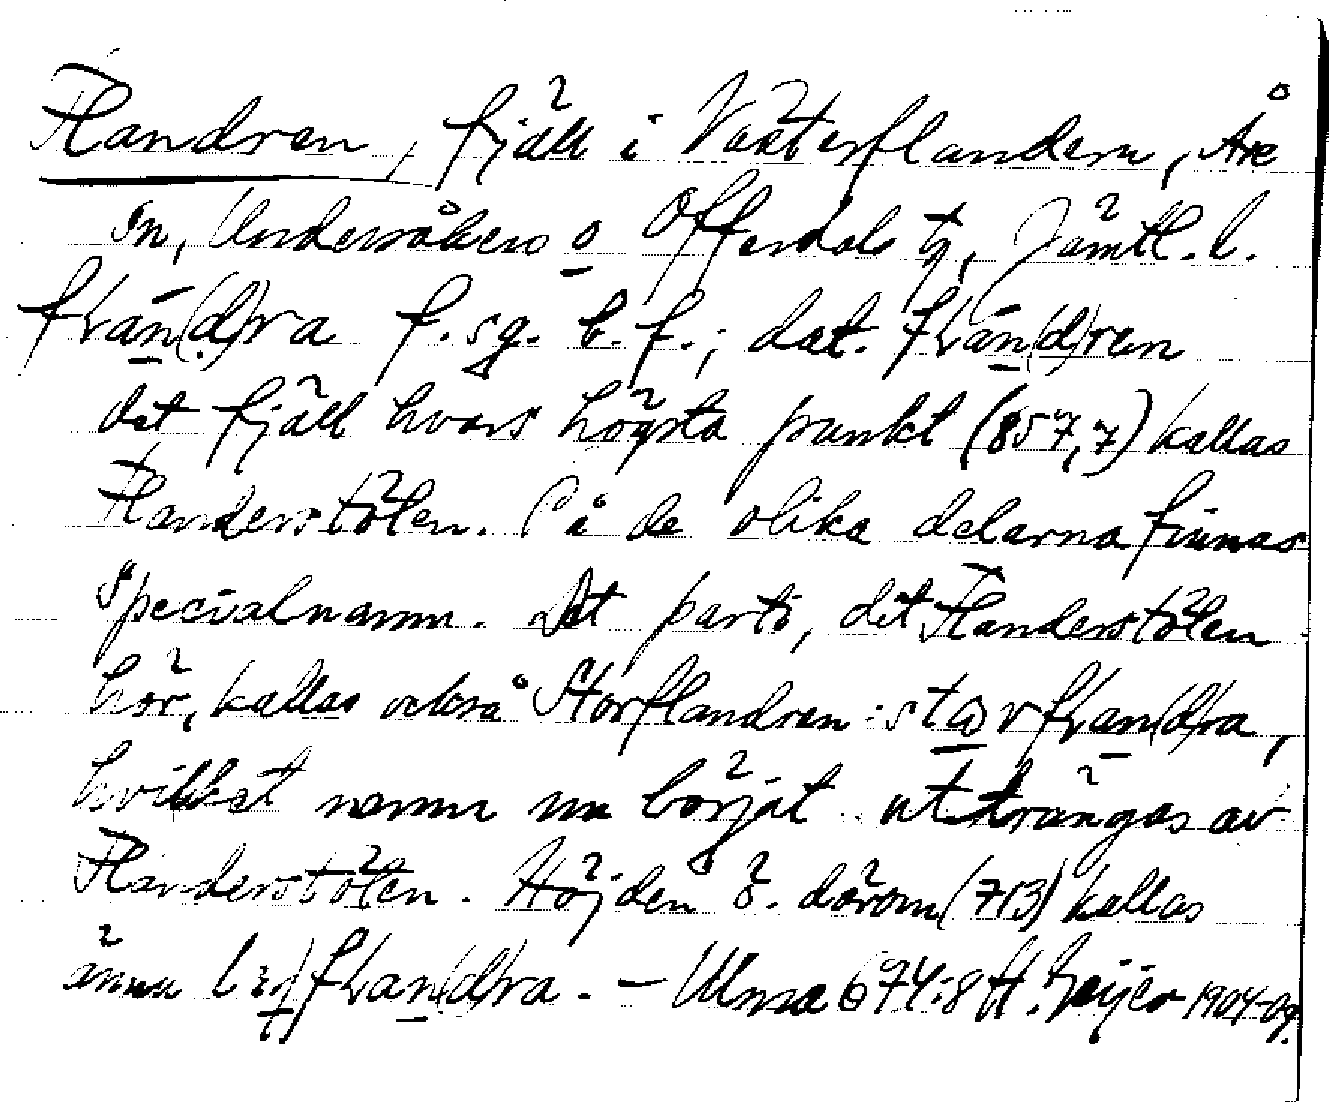 Flandren, fjäll i Västerflandern, Åre
sn, Undersåkers o Offerdals tg, Jämtl. l.
flan(d)ra f. sg. b. f.; dat. flan(d)ren
det fjäll hvars högsta punkt (857,7) kallas
Flanderstöten. På de olika delarna finnas
specialnamn. Det parti, dit Flanderstöten
hör, kallas också Storflandren: storflan(d)ra,
hvilket namn nu börjat utträngas av
Flanderstöten. Höjden ö. därom (713) kallas
ännu flan(d)ra. – Ulma 674:8 H. Geijer 1904-09.